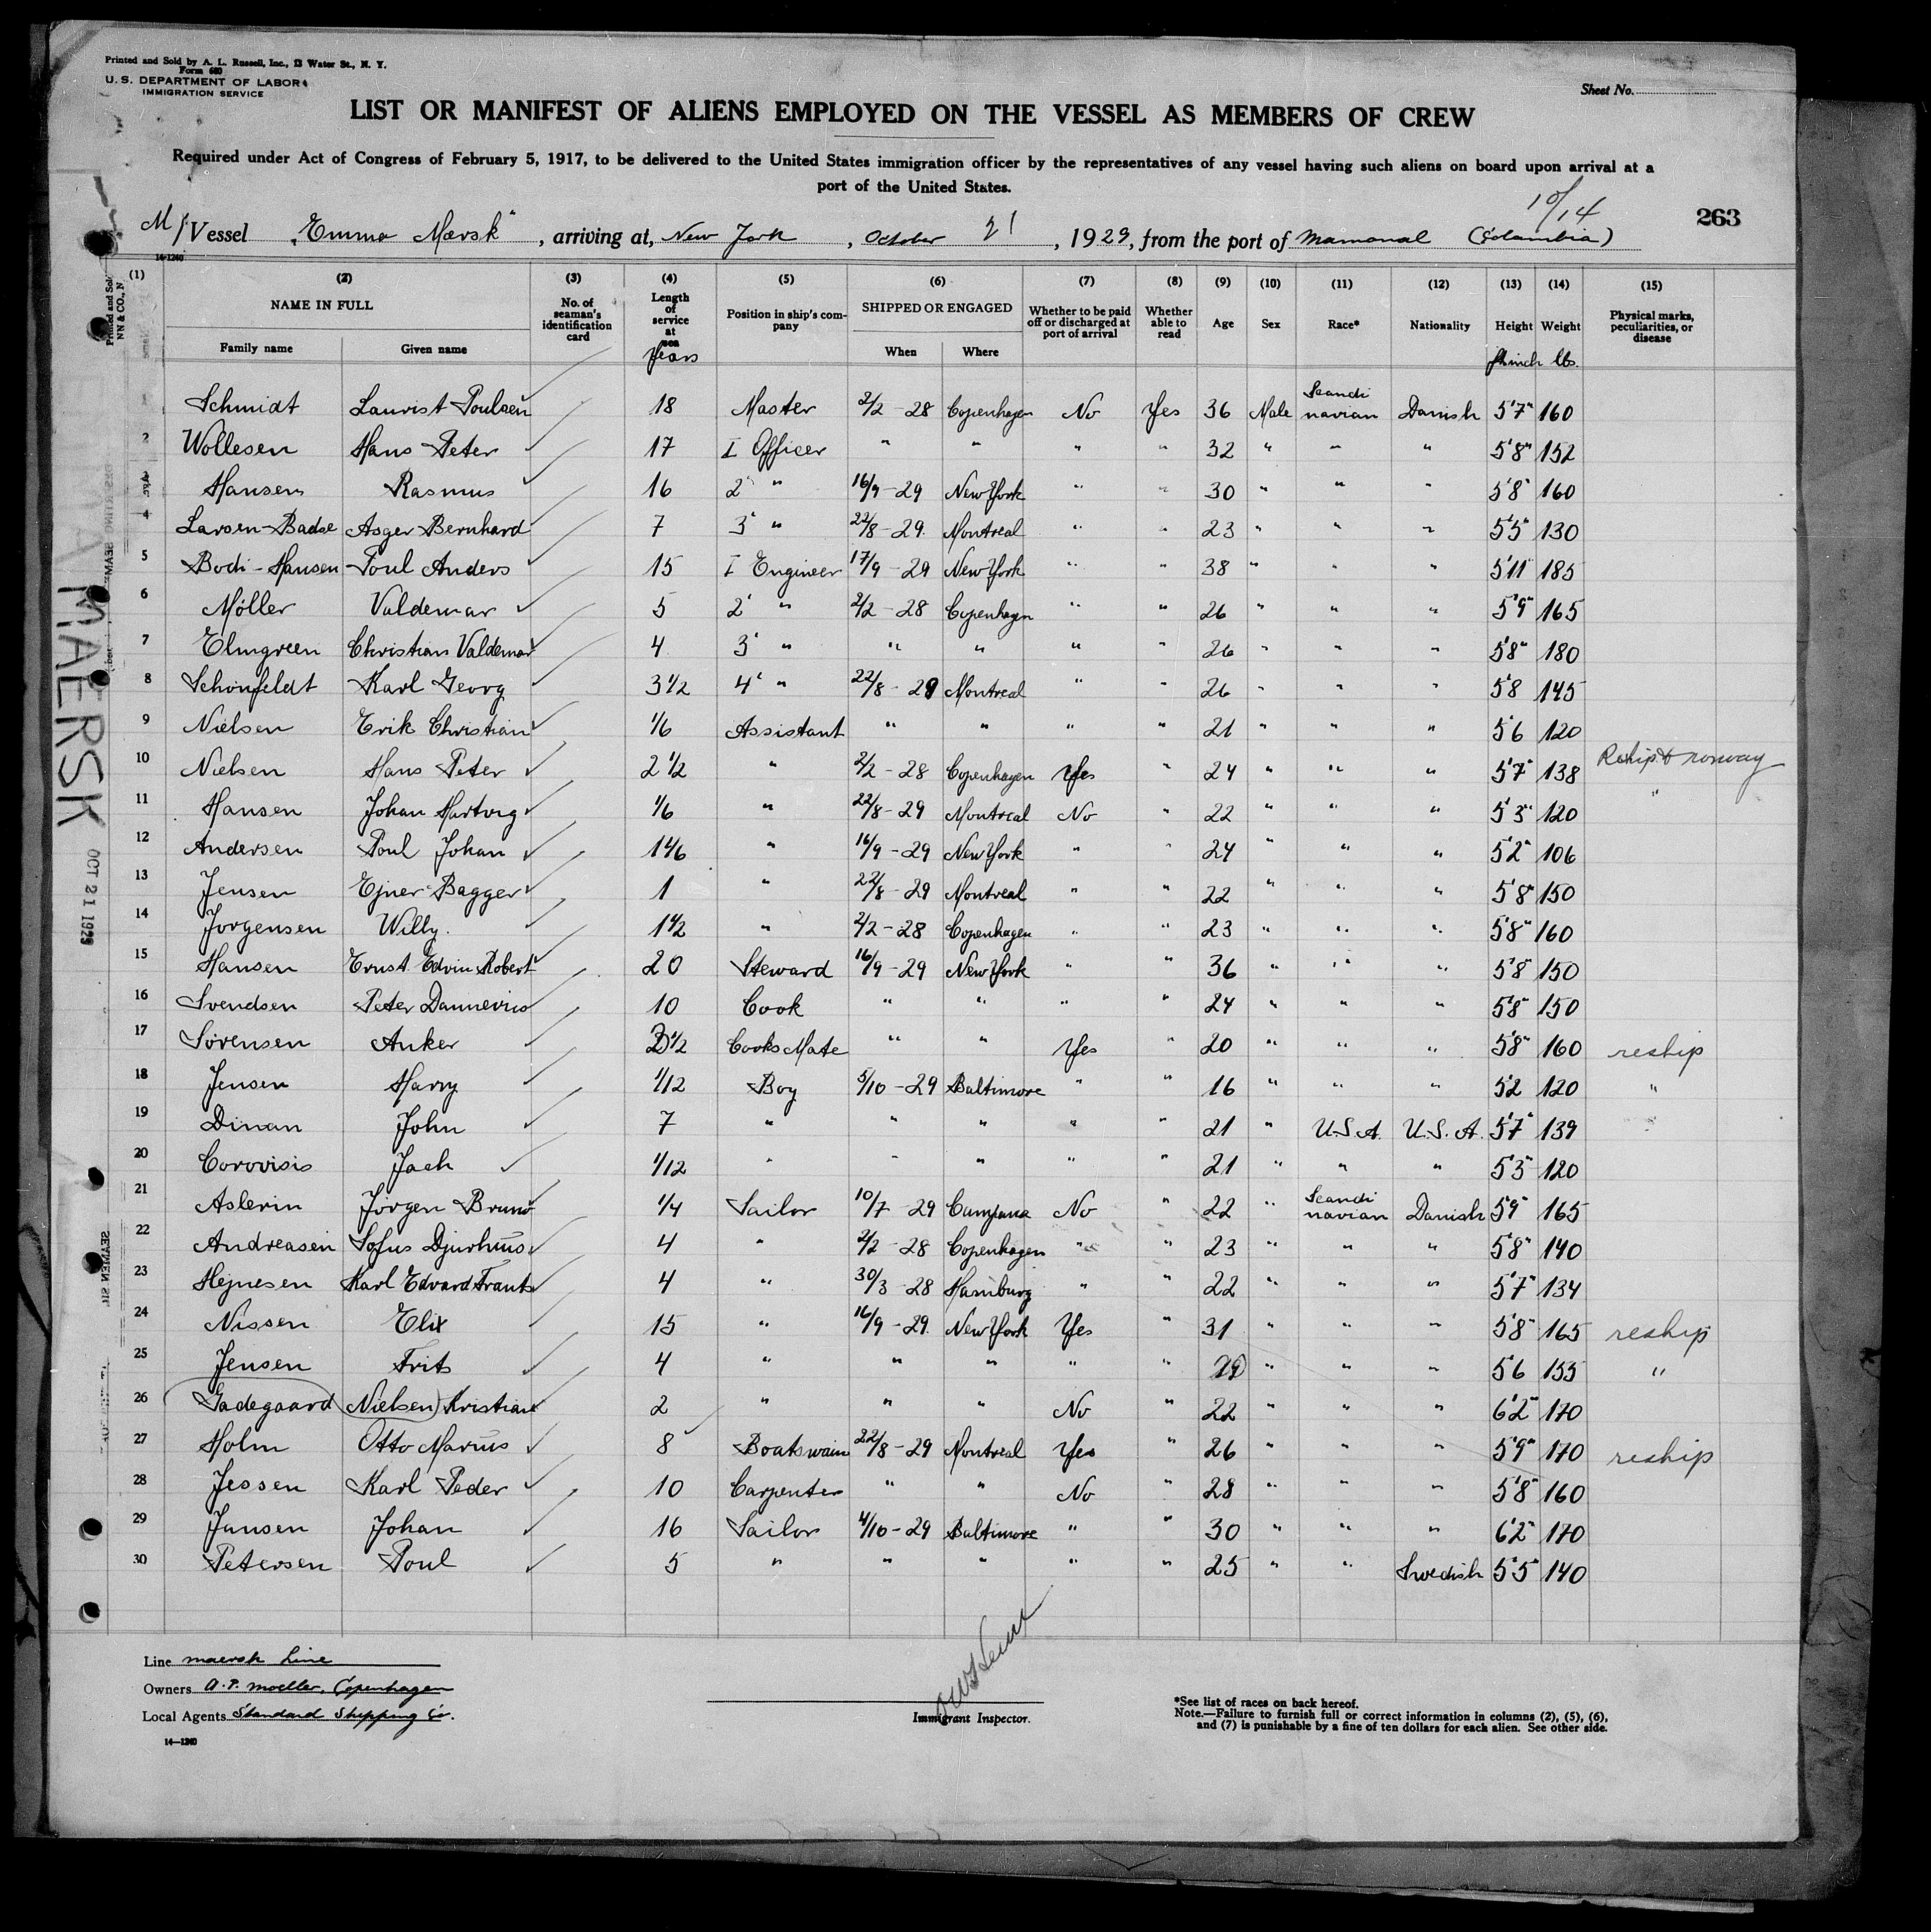 Printed and Sold by A. L. Russell, Inc., 13 Water St., N. Y.
Form 680
U. S. DEPARTMENT OF LABOR
IMMIGRATION SERVICE
Sheet No.
LIST OR MANIFEST OF ALIENS EMPLOYED ON THE VESSEL AS MEMBERS OF CREW
Required under Act of Congress of February 5, 1917, to be delivered to the United States immigration officer by the representatives of any vessel having such aliens on board upon arrival at a
port of the United States.
10/14
263
M/Vessel "Emma Mærsk", arriving at, New York, October 21, 1929, from the port of Mamonal (Columbia)
14-1240
(1) (2) (3) (4) (5) (6) (7) (8) (9) (10) (11) (12) (13) (14) (15)
NAME IN FULL No. of seaman's identification card Length of service at sea Position in ship's company SHIPPED OR ENGAGED Whether to be paid off or discharged at port of arrival Whether able to read Age Sex Race* Nationality Height Weight Physical marks, peculiarities, or disease
Family name Given name Years When Where ft inch lbs.
Schmidt Laurist Poulsen 18 Master 2/2 - 28 Copenhagen No Yes 36 Male Scandinavian Danish 5'7" 160
2 Wollesen Hans Peter 17 I Officer " " " " 32 " " " 5'8" 152
3 Hansen Rasmus 16 2' " 16/9 - 29 New York " " 30 " " " 5'8" 160
4 Larsen-Badse Asger Bernhard 7 3' " 22/8 - 29. Montreal " " 23 " " " 5'5" 130
5 Bodi-Hansen Poul Anders 15 I Engineer 17/9 - 29 New York " " 38 " " " 5'11" 185
6 Möller Valdemar 5 2' " 2/2 - 28 Copenhagen " " 26 " " " 5'9" 165
7 Elmgreen Christian Valdemar 4 3' " " " " " 26 " " " 5'8" 180
8 Schönfeldt Karl Georg 3 1/2 4' " 22/8 - 29 Montreal " " 26 " " " 5'8 145
9 Nielsen Erik Christian 1/6 Assistant " " " " 21 " " " 5'6 120
10 Nielsen Hans Peter 2 1/2 " 2/2 - 28 Copenhagen Yes " 24 " " " 5'7" 138 Reship to Norway
11 Hansen Johan Hartvig 1/6 " 22/8 - 29 Montreal No " 22 " " " 5'3" 120 "
12 Andersen Poul Johan 1 1/6 " 16/9 - 29 New York " " 24 " " " 5'2" 106
13 Jensen Ejner Bagger 1 " 22/8 - 29 Montreal " " 22 " " " 5'8" 150
14 Jorgensen Willy. 1 1/2 " 2/2 - 28 Copenhagen " " 23 " " " 5'8" 160
15 Hansen Ernst Edvin Robert 20 Steward 16/9 - 29 New York " " 36 " " " 5'8" 150
16 Svendsen Peter Dannevius 10 Cook " " " " 24 " " " 5'8" 150
17 Sörensen Anker 1/2 Cooks Mate " " Yes " 20 " " " 5'8" 160 reship
18 Jensen Harry 1/12 Boy 5/10 - 29 Baltimore " " 16 " " " 5'2 120 "
19 Dinan John 7 " " " " " 21 " U.S.A. U.S.A. 5'7" 139
20 Corovisis Jach 1/12 " " " " " 21 " " " 5'5" 120
21 Aslerin Jörgen Bruno 1/4 Sailor 10/7 - 29 Campana No " 22 " Scandinavian Danish 5'9" 165
22 Andreasen Sofus Djurhuus 4 " 2/2 - 28 Copenhagen " " 23 " " " 5'8" 140
23 Hejnesen Karl Edvard Frants 4 " 30/3 - 28 Hamburg " " 22 " " " 5'7" 134
24 Nissen Elix 15 " 16/9 - 29. New York Yes " 31 " " " 5'8" 165 reship
25 Jensen Frits 4 " " " " " " " " 5'6 155 "
26 Gadegaard (Nielsen) Kristian 2 " " " No " 22 " " " 6'2" 170
27 Holm Otto Marius 8 Boatswain 22/8 - 29 Montreal Yes " 26 " " " 5'9" 170 reship
28 Jessen Karl Peder 10 Carpenter " " No " 28 " " " 5'8" 160
29 Jansen Johan 16 Sailor 4/10 - 29 Baltimore " " 30 " " " 6'2" 170
30 Petersen Poul 5 " " " " " 25 " " Swedish 5'5" 140
MAERSK
OCT 21 1929
Line Maersk Line
Owners A. P. Moeller, Copenhagen
Local Agents Standard Shipping Co.
14-1240
Immigrant Inspector.
*See list of races on back hereof.
Note.—Failure to furnish full or correct information in columns (2), (5), (6),
and (7) is punishable by a fine of ten dollars for each alien. See other side.